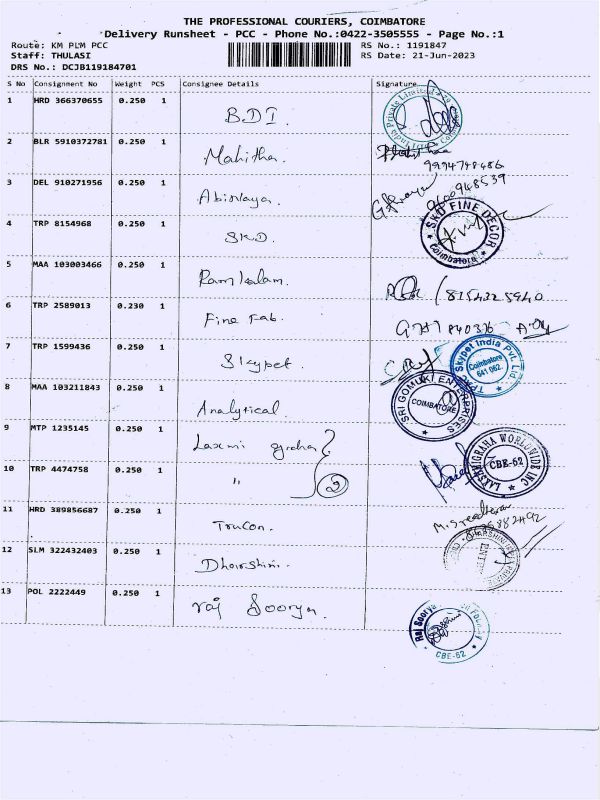 THE PROFESSIONAL COURIERS, COIMBATORE
Delivery Runsheet - PCC - Phone No.:0422-3505555 - Page No.:1
Route: KM PLM PCC
RS No.: 1191847
Staff: THULASI
RS Date: 21-Jun-2023
DRS No.: DCJB119184701
S No Consignment No Weight PCS Consignee Details Signature
1 HRD 366370655 0.250 1 BDI.
Private Limited
2 BLR 5910372781 0.250 1 Mahitha.
9994798486
3 DEL 910271956 0.250 1 Abinaya.
9600948539
4 TRP 8154968 0.250 1 SKD.
SKD FINE DECOR
Coimbatore
5 MAA 103003466 0.250 1 Ramkalam.
8154325940
6 TRP 2589013 0.230 1 Fine Fab.
7 TRP 1599436 0.250 1 Skypet.
Skypet India Pvt. Ltd.
Coimbatore
641 062.
8 MAA 103211843 0.250 1 Analytical.
SRI GOMUKI ENTERPRISES
COIMBATORE
9 MTP 1235145 0.250 1 Laxmi graha
LAKSHMIGRAHA WORLDWIDE INC
CBE-62
10 TRP 4474758 0.250 1 "
2
11 HRD 389856687 0.250 1 Trucon.
M. Sreedharan
12 SLM 322432403 0.250 1 Dharshini.
13 POL 2222449 0.250 1 raj Soorya.
Raj Soorya
Foundry
CBE-62